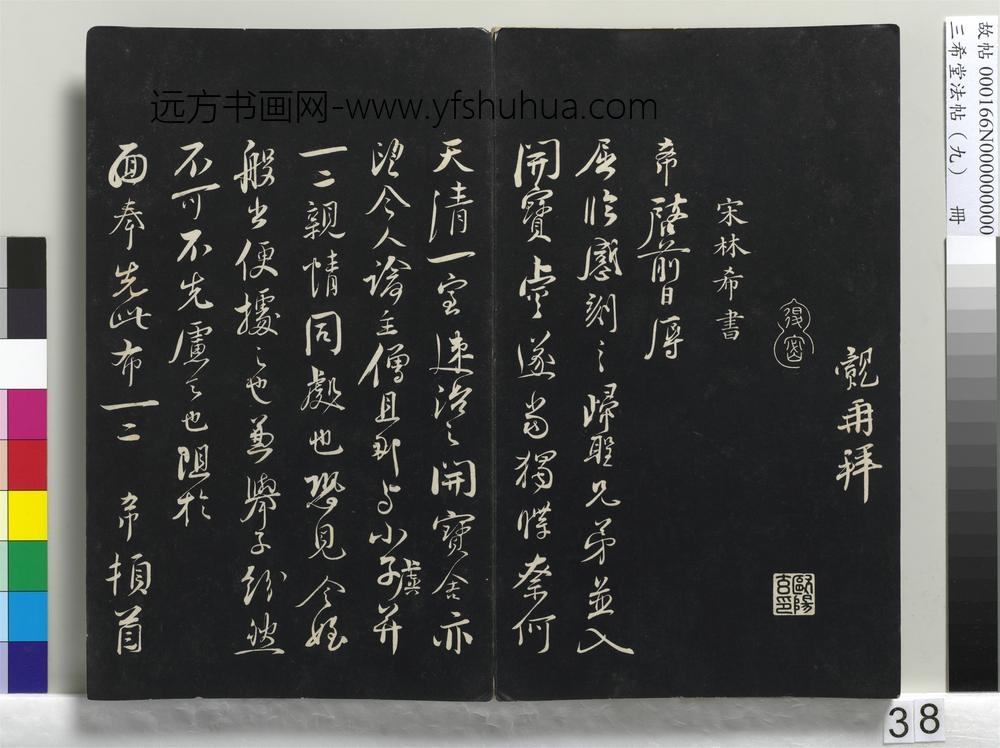 覿再拜
宋林希書
希啓前日辱
屈臨感刻之歸聖兄弟並入
開寶虛遂當獨牒奈何
天清一室速治之開寶舍亦
望令人諭主僧且那与小子虞并
一二親情同處也恐見今姪
般出便擾之也兼舉子紛然
不可不先慮之也阻於
面奉先此布一二 希頓首
歐陽玄印
远方书画网-www.yfshuhua.com
故帖 000166N000000000
三希堂法帖（九） 册
38